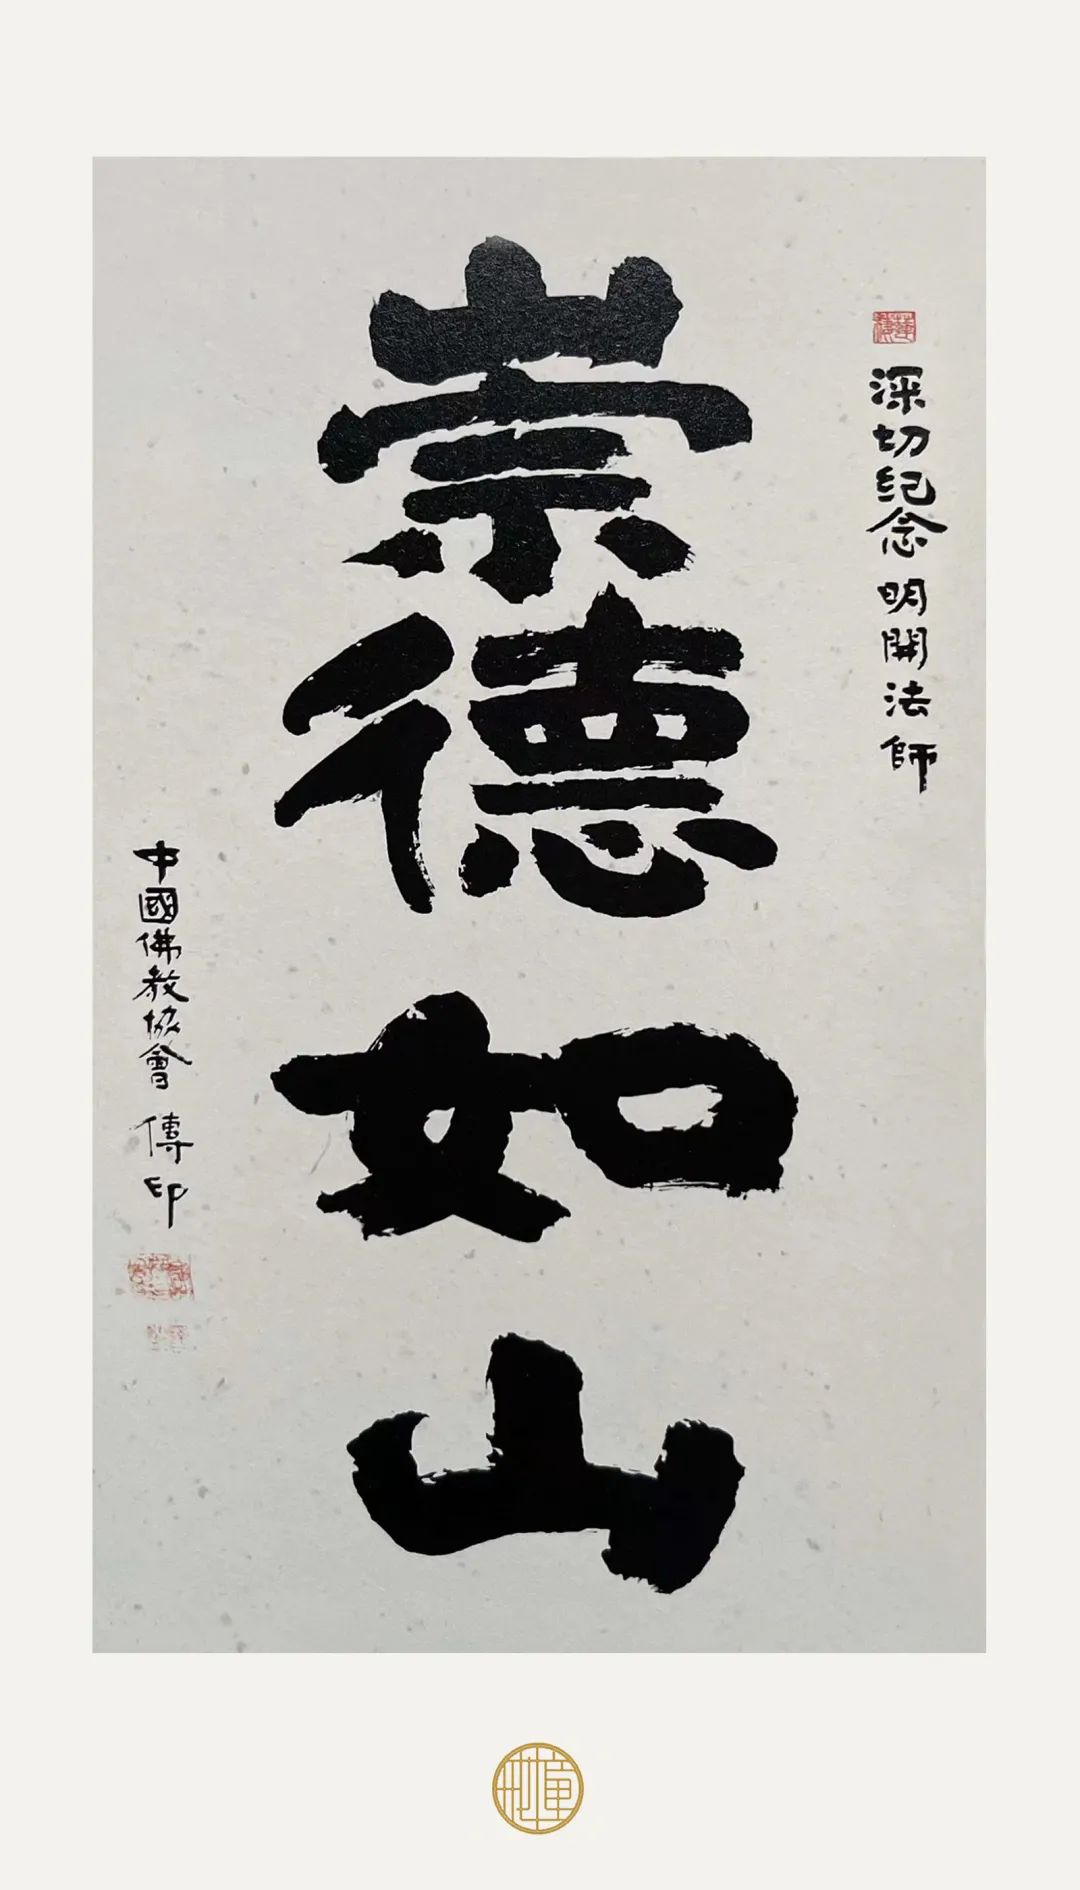 深切纪念明開法師
崇德如山
中國佛教協會 傳印